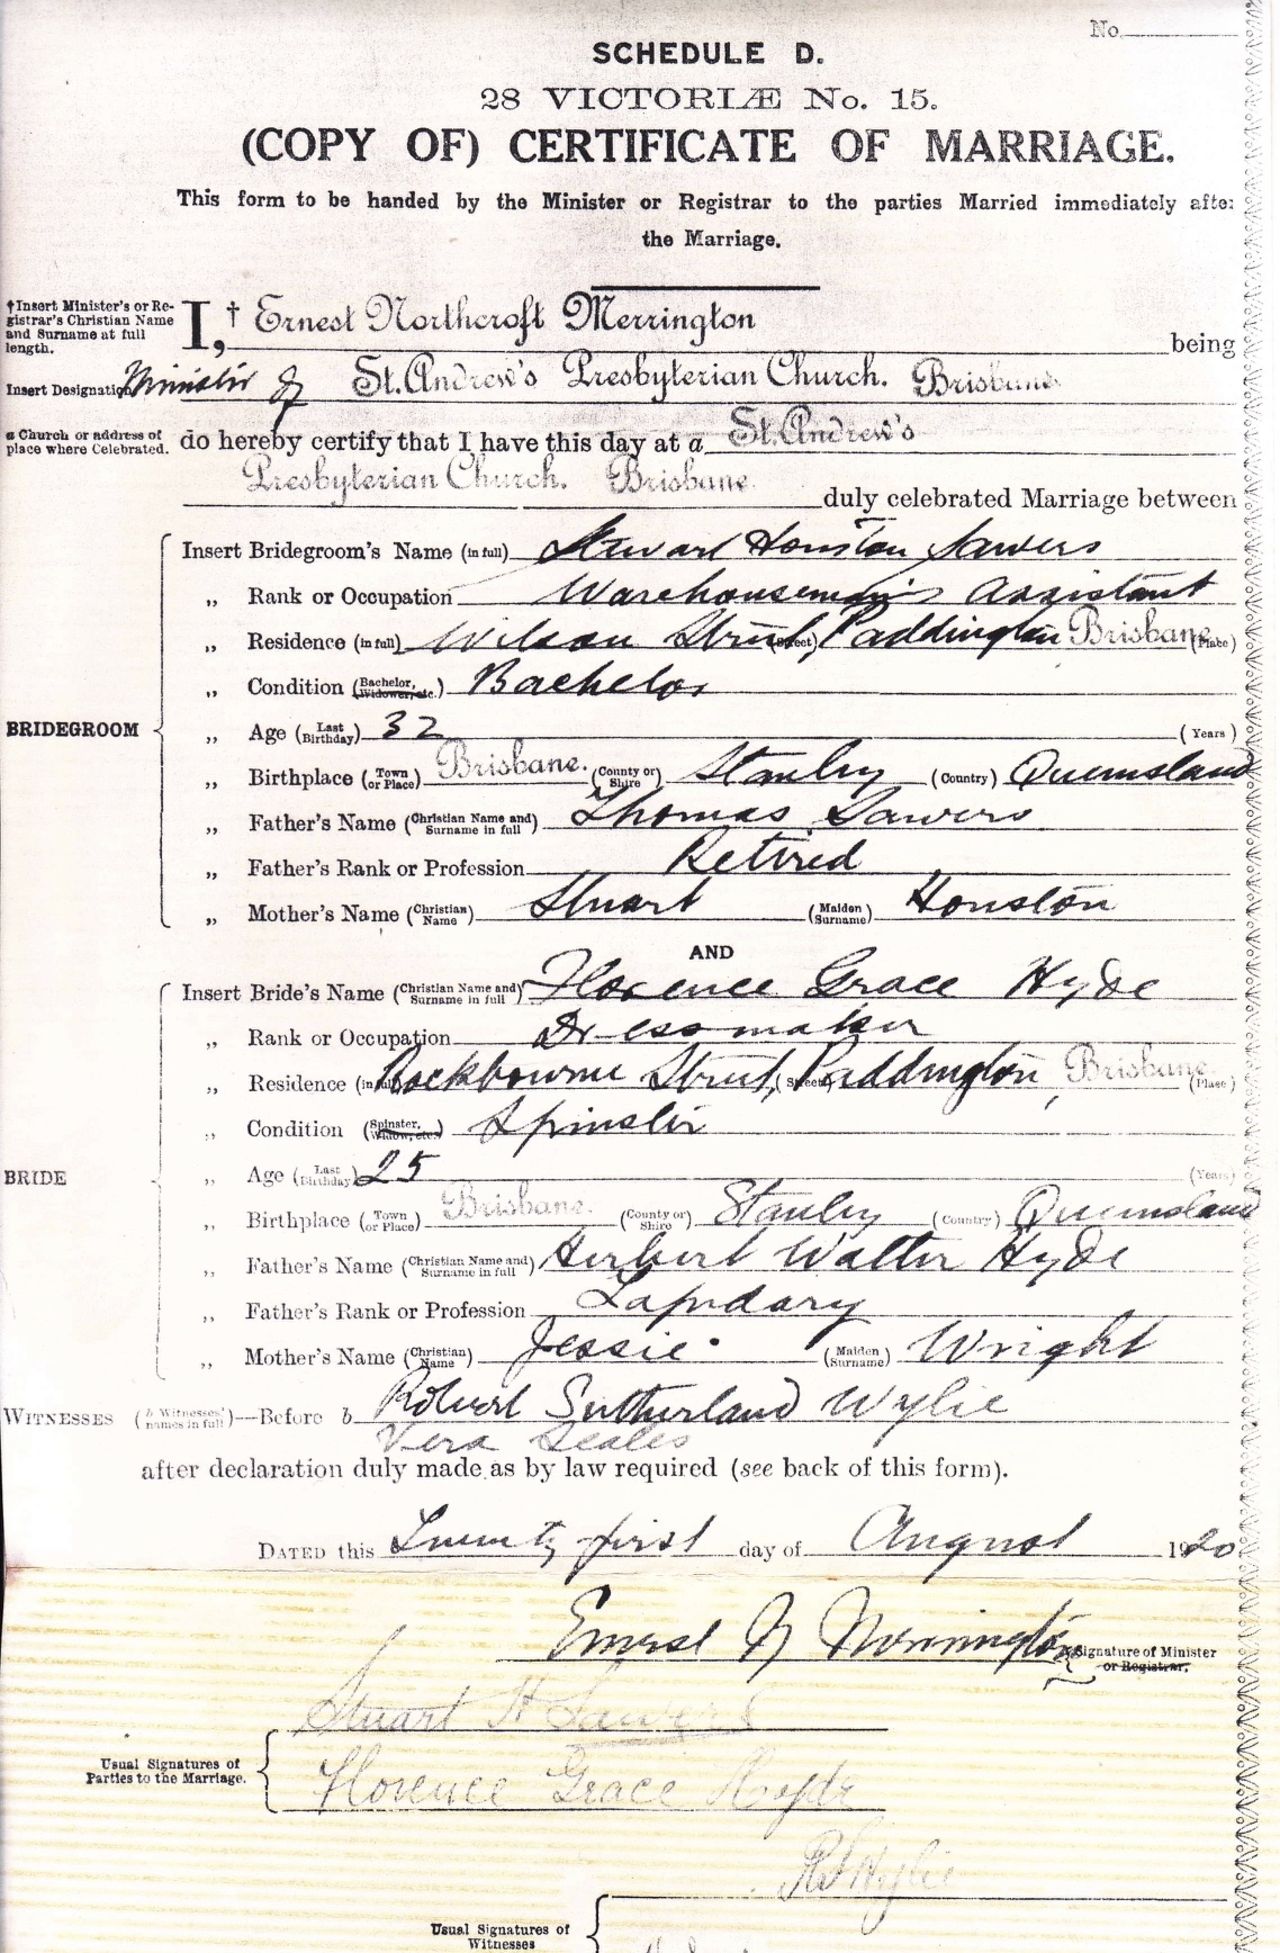 No.
SCHEDULE D.
28 VICTORIÆ No. 15.
(COPY OF) CERTIFICATE OF MARRIAGE.
This form to be handed by the Minister or Registrar to the parties Married immediately after
the Marriage.
†Insert Minister's or Registrar's Christian Name and Surname at full length. I, † Ernest Northcroft Merrington being
Insert Designation Minister of St. Andrew's Presbyterian Church. Brisbane.
a Church or address of place where Celebrated. do hereby certify that I have this day at a St. Andrew's
Presbyterian Church. Brisbane. duly celebrated Marriage between
BRIDEGROOM
Insert Bridegroom's Name (in full) Stuart Houston Sawers
„ Rank or Occupation Warehouseman's Assistant
„ Residence (in full) Wilson Street, (Street) Paddington Brisbane (Place)
„ Condition (Bachelor, Widower, etc.) Bachelor
„ Age (Last Birthday) 32 (Years)
„ Birthplace (Town or Place) Brisbane. (County or Shire) Stanley (Country) Queensland
„ Father's Name (Christian Name and Surname in full) Thomas Sawers
„ Father's Rank or Profession Retired
„ Mother's Name (Christian Name) Stuart (Maiden Surname) Houston
AND
BRIDE
Insert Bride's Name (Christian Name and Surname in full) Florence Grace Hyde
„ Rank or Occupation Dressmaker
„ Residence (in full) Rockbourne Street, (Street) Paddington, Brisbane. (Place)
„ Condition (Spinster, Widow, etc.) Spinster
„ Age (Last Birthday) 25 (Years)
„ Birthplace (Town or Place) Brisbane. (County or Shire) Stanley (Country) Queensland
„ Father's Name (Christian Name and Surname in full) Herbert Walter Hyde
„ Father's Rank or Profession Lapidary
„ Mother's Name (Christian Name) Jessie (Maiden Surname) Wright
WITNESSES (b Witnesses' names in full)—Before b Robert Sutherland Wylie
Vera Seales
after declaration duly made as by law required (see back of this form).
DATED this Twenty first day of August 1920
Ernest N Merrington Signature of Minister or Registrar.
Stuart H Sawers
Usual Signatures of Parties to the Marriage.
Florence Grace Hyde
R S Wylie
Usual Signatures of Witnesses